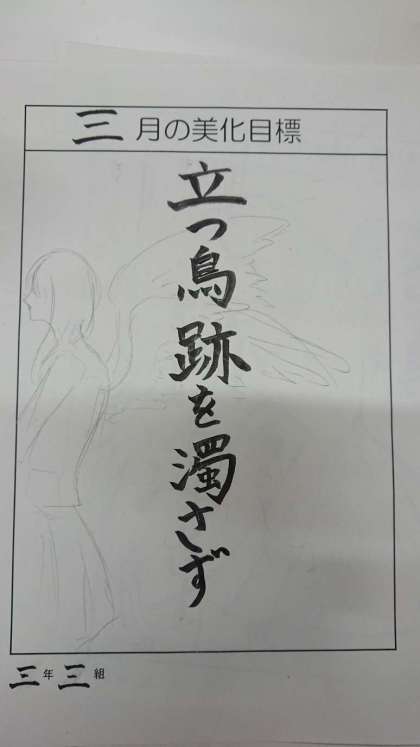 三月の美化目標
立つ鳥跡を濁さず
三年三組